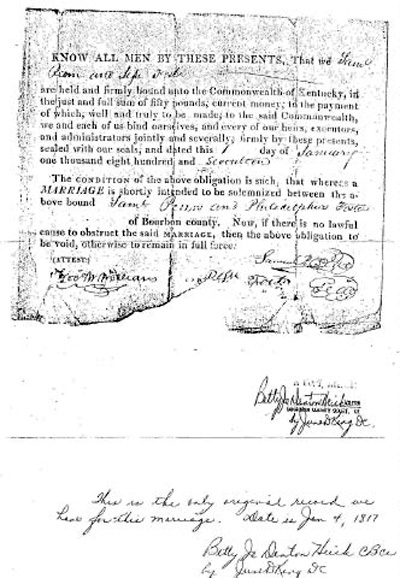 KNOW ALL MEN BY THESE PRESENTS, That we Saml
Penn and
are held and firmly bound unto the Commonwealth of Kentucky, in
the just and full sum of fifty pounds, current money; to the payment
of which, well and truly to be made; to the said Commonwealth,
we and each of us bind ourselves, and every of our heirs, executors,
and administrators jointly and severally; firmly by these presents,
sealed with our seals, and dated this day of January
one thousand eight hundred and Seventeen
THE CONDITION of the above obligation is such, that whereas a
MARRIAGE is shortly intended to be solemnized between the a-
bove bound Saml Penn and Philadelphia Foster
of Bourbon county. Now, if there is no lawful
cause to obstruct the said MARRIAGE, then the above obligation to
be void, otherwise to remain in full force.
(ATTEST)
Samuel
Foster
Betty Jo Denton Heick
by June D King DC.
This is the only original record we
have for this marriage. Date is Jan 4, 1817
Betty Jo Denton Heick CBCC
by June D King DC